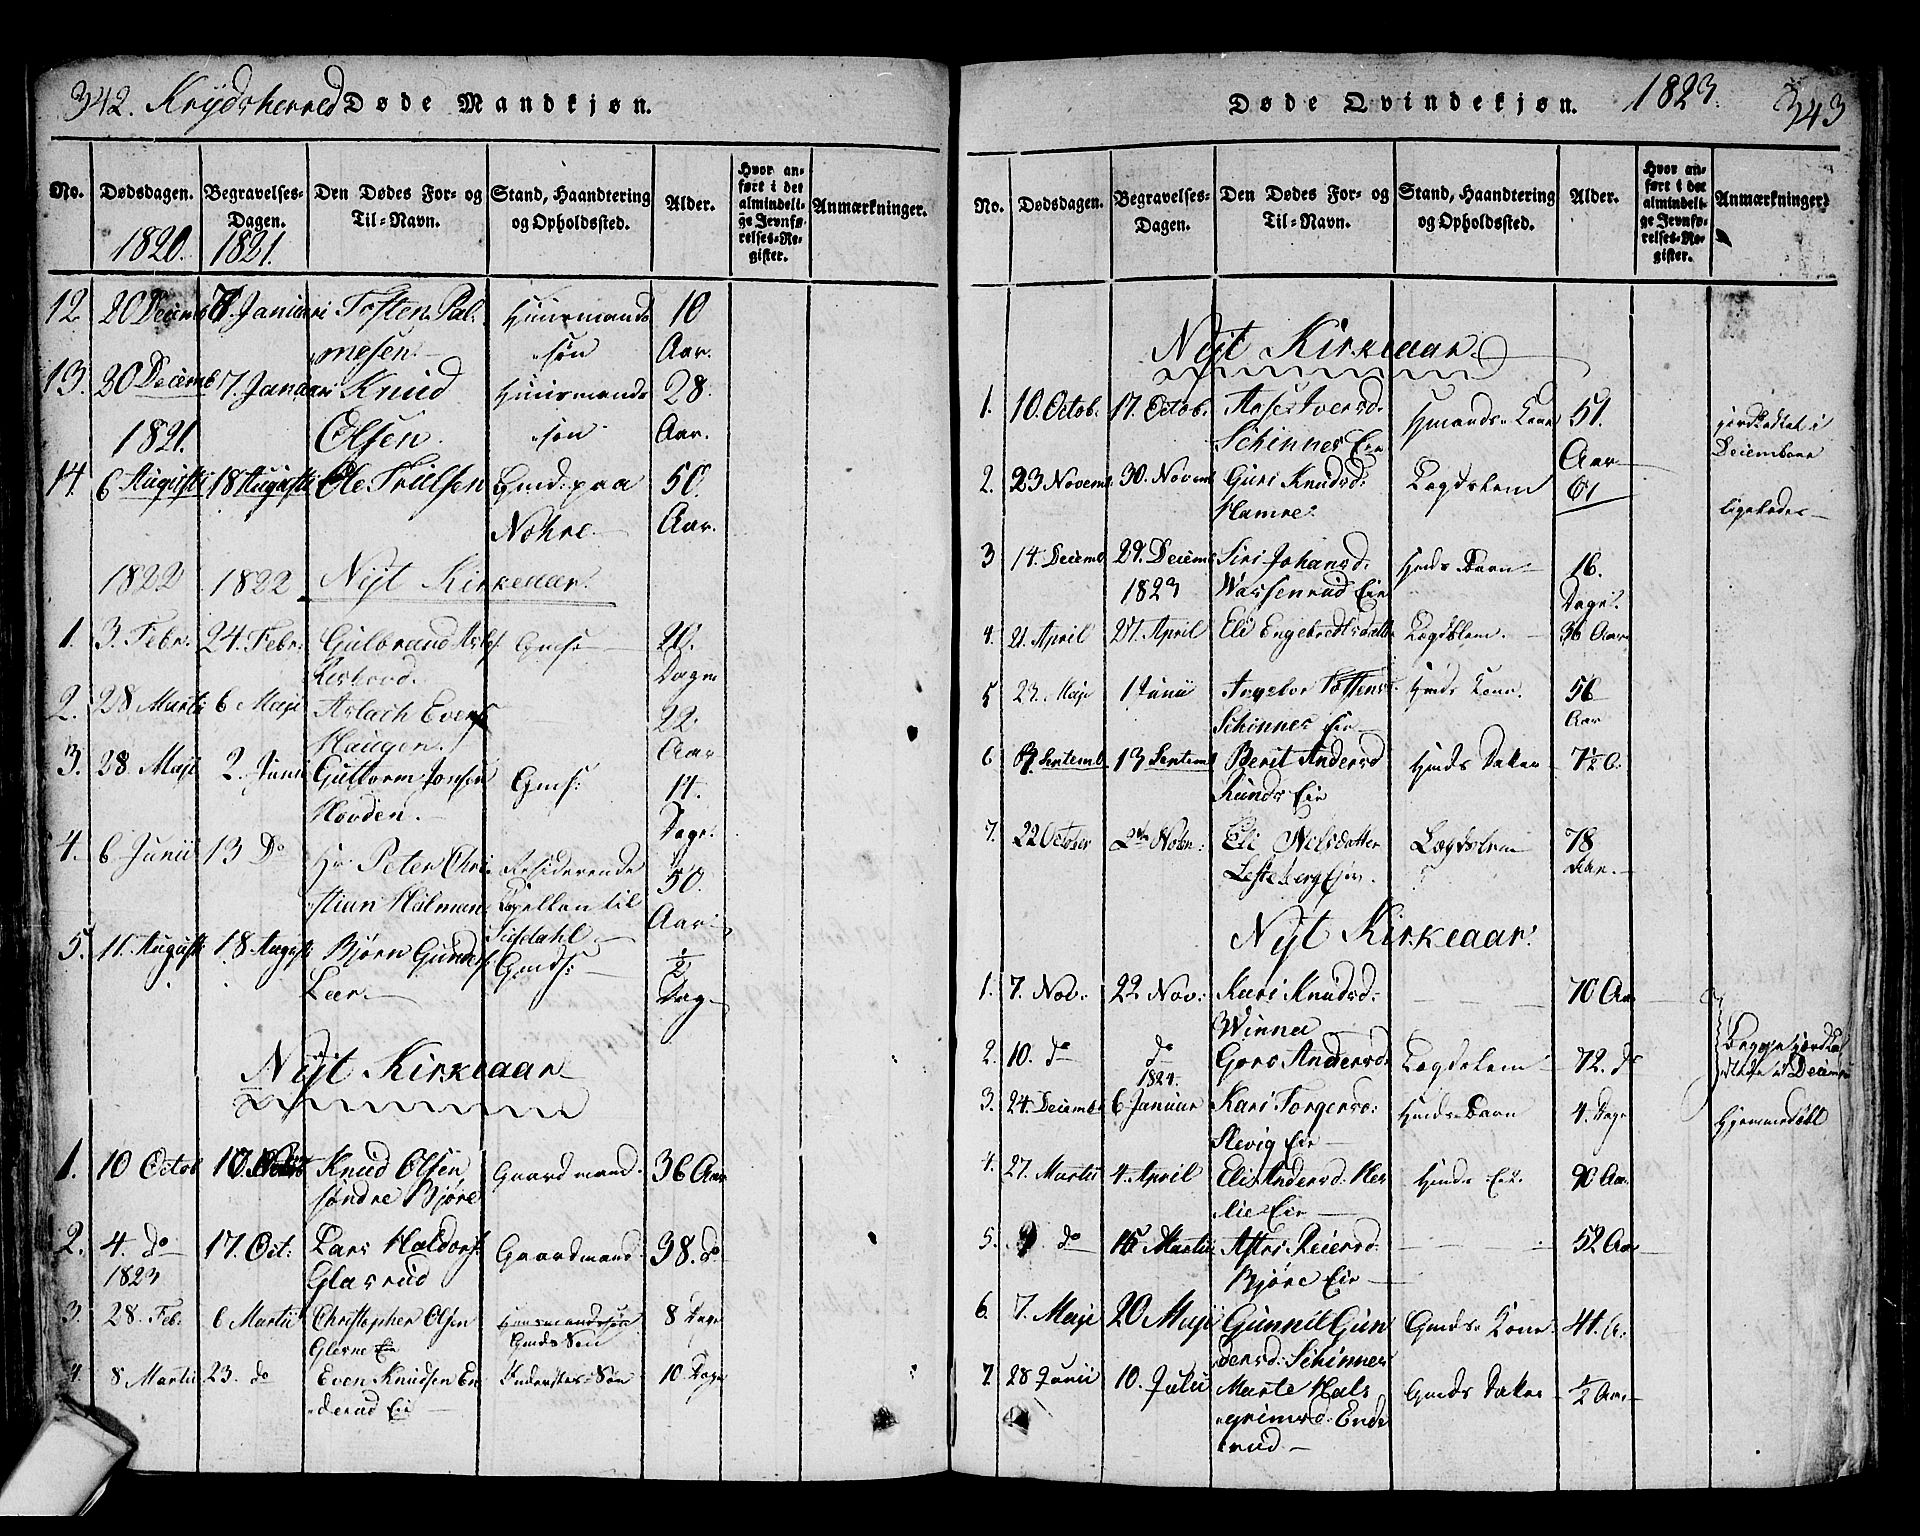 342. Krydsherred Døde Mandkjøn.
No. Dødsdagen. Begravelses-Dagen. Den Dødes For- og Til-Navn. Stand, Haandtering og Opholdssted. Alder. Hvor anført i det almindelige Jevnførelses-Register. Anmærkninger.
1820. 1821.
12. 20 Decemb 7. Januari Tosten Pal- Huusmands 10
mesen. søn Aar.
13. 30 Decemb 7. Januari Knud Huusmands 28.
1821. Olsen. søn Aar.
14. 6 Augusti 18 Augusti Ole Trulsen Gmd. paa 50.
Nohre. Aar.
1822 1822 Nyt Kirkeaar.
1. 3. Febr. 24. Febr. Gulbrand Gms. 20.
Dage
2. 28 Marti 6 Maji Aslach Evens 22.
Haugen. Aar
3. 28. Maji 2. Junii Guttorm Gms: 14.
Hovden. Dage.
4. 6 Junii 13 Do Hr Peter Chri- Residerende 50.
stian Holman Capellan til Aar.
Sigdahl
5. 11. Augusti 18 Augusti Bjørn Gunders Gmds: 1/2
Lær. Dag
Nyt Kirkeaar
1. 10 Octob 10. Knud Olsen Gaardmand. 36 Aar
søndre Bjøre
2. 4. do 17. Oct: Lars Haldors. Gaardmand 38. do
1823 Glasrud
3. 28. Feb. 6 Martii Christopher Olsen Huusmandssøn 8 Dage
Glesne Eie Gmds Søn
4. 8 Martii 23. do Even Knudsen En- Søn 10 Dage
derud Eie
Døde Qvindekjøn. 1823. 343
No. Dødsdagen. Begravelses-Dagen. Den Dødes For- og Til-Navn. Stand, Haandtering og Opholdssted. Alder. Hvor anført i det almindelige Jevnførelses-Register. Anmærkninger.
Nyt Kirkeaar.
1. 10. Octob. 17. Octob. Iversd. Hmands Kone 51. jordkastet i
Schinnes Eie Aar Decembere
2. 23 Novemb. 30. Novemb Guri Knudsd. Lægdslem 61 ligeledes
Hamre.
3 14. Decemb 29. Decemb Siri Johansd. Hmds Barn 16.
1823 Wassenrud Eie Dage.
4. 21. April 27. April Eli Engebretsdatter Lægdslem. 36 Aar
5 23. Maji 1 Junii Ingebor Tostensd. Hmds Kone. 56
Schinnes Eie Aar
6 Septemb 13 Septemb Berit Andersd Hmds Datter 7 1/2
Eie
7. 22 October 2den Novbr: Eli Nelsdatter Lægdslem 78
Lesteberg Eje. Aar.
Nyt Kirkeaar.
1. 7. Nov. 22 Nov: Kari Knudsd. 70 Aar
Winnes
2. 10. do do Goro Andersd. Lægdslem 72. do Begge jordka-
1824. stede i Decemb
3. 24. Decemb 6 Januar Kari Torgersd: Hmds Barn 4. Dage Hjemmedøbt
Slevig Eie
4. 27. Martii 4. April Eli Andersd. Hmds 90 Aar
Eie
5. do 15 Martii Astri Reiersd. 52 Aar
Bjøre Eie
6. 7. Maji 20 Maji Gunnil Gun Gmds Kone 41. A:
dersd. Schinnes
7. 28 Junii 10. Julii Marte Hals Gmds Datter 1/2 Aar
grimsd. Ende
rud